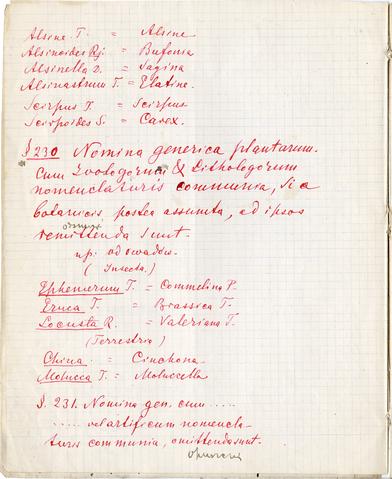 Alsine. T. = Alsine
Alsinoides Rj. = Bufonia
Alsinella D. = Sagina
Alsinastrum T. = Elatine.
Scirpus T. = Scirpus
Scirpoides S. = Carex.
§ 230 Nomina generica plantarum.
cum Zoologorum & Lithologorum
nomenclaturis communia, si a
botanicis postea assumta, ad ipsos
remittenda sunt.
(Insecta.)
Ephemerum T. = Commelina P.
Eruca T. = Brassica T.
Locusta R. = Valeriana T.
(Terrestria)
China = Cinchona.
Molucca T. = Moluccella
§. 231. Nomina gen. cum .....
..... vel artificum nomencla-
turis communia, omittenda sunt.